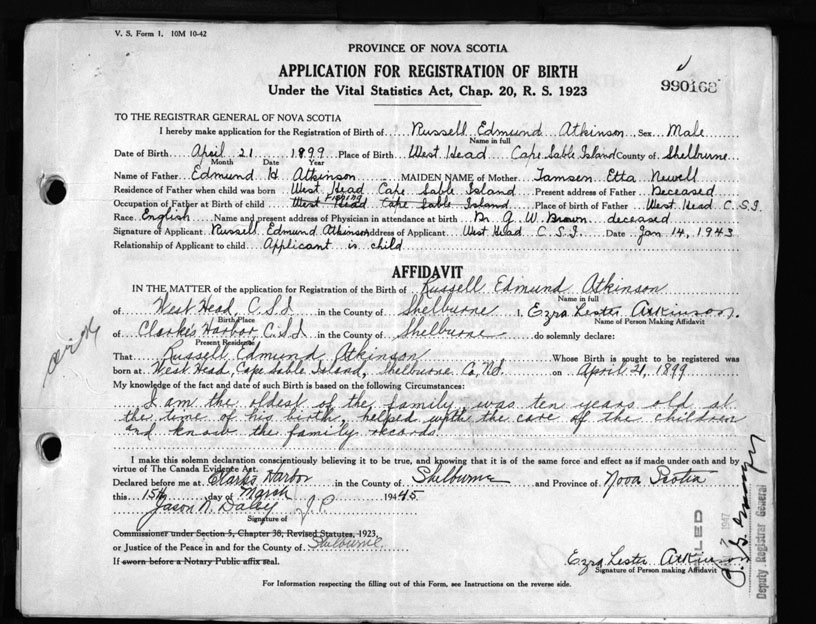 V. S. Form 1. 10M 10-42
PROVINCE OF NOVA SCOTIA
APPLICATION FOR REGISTRATION OF BIRTH
Under the Vital Statistics Act, Chap. 20, R. S. 1923
990168
TO THE REGISTRAR GENERAL OF NOVA SCOTIA
I hereby make application for the Registration of Birth of Russell Edmund Atkinson Sex Male
Name in full
Date of Birth April 21 1899 Place of Birth West Head Cape Sable Island County of Shelburne
Month Date Year
Name of Father Edmund H Atkinson MAIDEN NAME of Mother Tamsen Etta Newell
Residence of Father when child was born West Head Cape Sable Island Present address of Father Deceased
Occupation of Father at Birth of child West Head Fishing Cape Sable Island Place of birth of Father West Head C.S.I.
Race English Name and present address of Physician in attendance at birth Dr. G. W. Brown deceased
Signature of Applicant Russell Edmund Atkinson Address of Applicant West Head C.S.I. Date Jan 14, 1943
Relationship of Applicant to child Applicant is child
AFFIDAVIT
IN THE MATTER of the application for Registration of the Birth of Russell Edmund Atkinson
Name in full
of West Head, C.S.I in the County of Shelburne I, Ezra Lester Atkinson.
Birth Place Name of Person Making Affidavit
of Clark's Harbor, C.S.I in the County of Shelburne do solemnly declare:
Present Residence
That Russell Edmund Atkinson Whose Birth is sought to be registered was
born at West Head, Cape Sable Island, Shelburne Co, N.S. on April 21, 1899
My knowledge of the fact and date of such Birth is based on the following Circumstances:
I am the oldest of the family, was ten years old at
the time of his birth, helped with the care of the children
and know the family records.
I make this solemn declaration conscientiously believing it to be true, and knowing that it is of the same force and effect as if made under oath and by
virtue of The Canada Evidence Act.
Declared before me at Clark's Harbor in the County of Shelburne and Province of Nova Scotia
this 15th day of March 194 45
Jason N. Daley J.P.
Signature of
Commissioner under Section 5, Chapter 38, Revised Statutes, 1923,
or Justice of the Peace in and for the County of Shelburne
If sworn before a Notary Public affix seal.
Ezra Lester Atkinson
Signature of Person making Affidavit
For Information respecting the filling out of this Form, see Instructions on the reverse side.
Deputy Registrar General